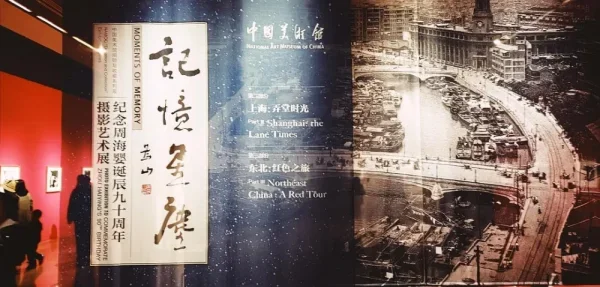 中國美術館
NATIONAL ART MUSEUM OF CHINA
記憶星塵
MOMENTS OF MEMORY
纪念周海婴诞辰九十周年
摄影艺术展
PHOTO EXHIBITION TO COMMEMORATE
ZHOU HAIYING'S 90TH BIRTHDAY
第二部分
上海:弄堂时光
Part II Shanghai: the
Lane Times
第三部分
东北:红色之旅
Part III Northeast
China: A Red Tour